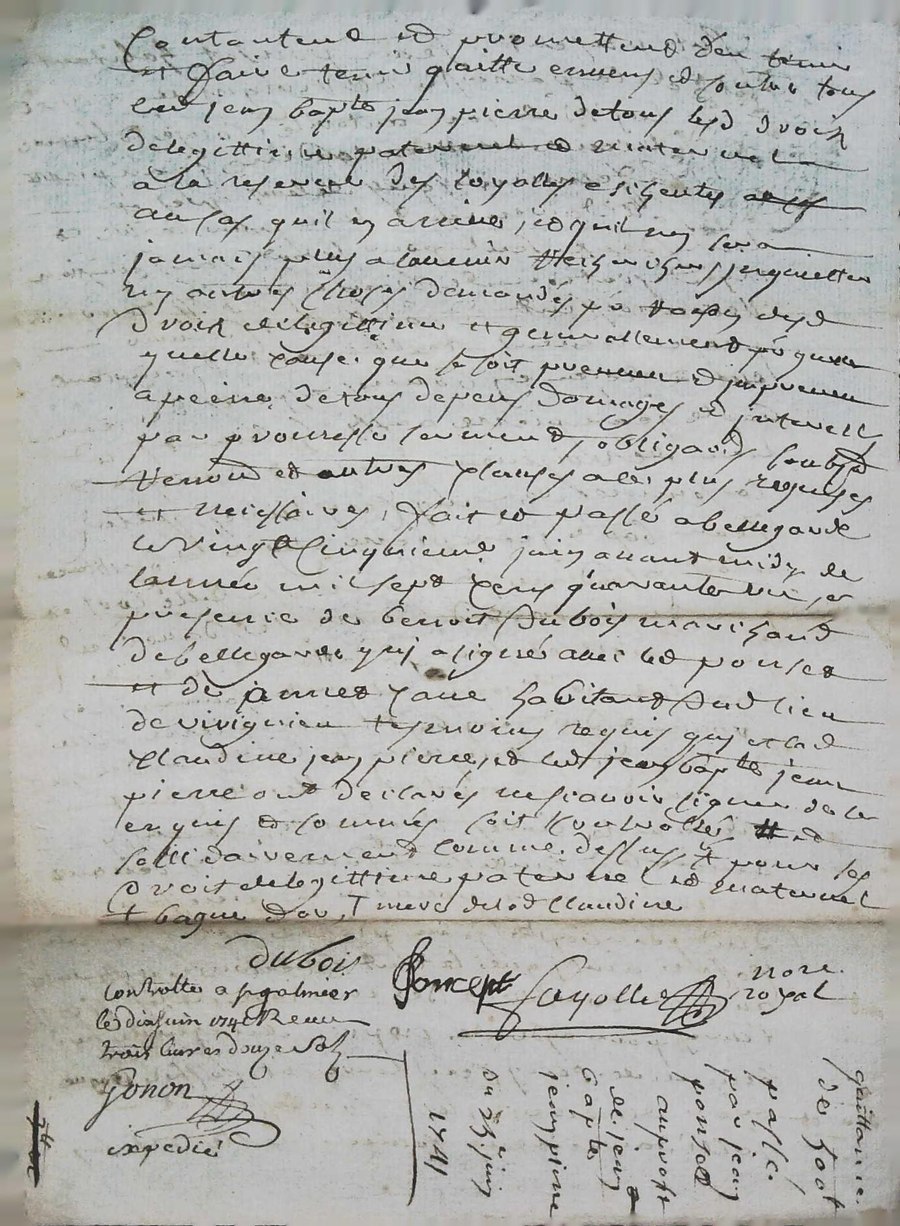 Contanteme et promettend den tenir
et faire tenir quitte envers et contre tous
led jean bapte jean pierre de tous lesd droix
delegittime paternel et maternel
a la reserve des loyalles exisentes
au cas quil y arrive, et quil ny sera
jamais plus a lavenir
ny autres choses demandés po raison desd
droix delegittime et generallement po quelle
quelle cause que se soit preveue et jmpreveue
apeine de tous depens domages et jnterests
par promesse serment, obligaons soubz
renon et autres clauses a ce plus requises
et neissaires, fait et passé a bellegarde
le vingt Cinquieme juin avant midy de
lannée mil sept cens quarante un, en
presence de benoit Dubois marchand
de bellegarde qui a signé avec led ponset
et de jamnet habitant dud lieu
de tesmoins requis qui et lad
Claudine jean pierre, et led jean bapte jean
pierre ont declarés ne scavoir signer de ce
enquis et sommés soit controllés et
sollidairement comme dessus et pour ses
droit de legittime paternel et maternel
et bague dor, mere de lad Claudine
dubois
Poncept
Fayolle nore
royal
Controlle a st galmier
le juin 1741 Receu
trois livres douze solz
Gonon
expedié
quittance
de
passé
par jean
ponset
au proffit
de jean
bapte
jean pierre
du 25e juin
1741